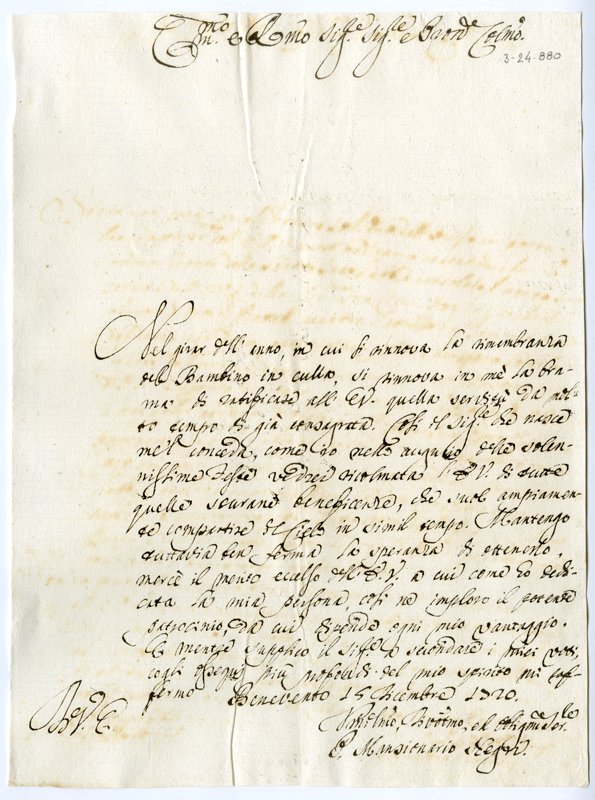 Ill.mo e R.mo Sig.re Sig.re e Padrõ Colmo.
3-24-880
Nel girar dell' anno, in cui si rinnova la rimembranza
del Bambino in culla, si rinnova in me la bra-
ma di ratificare all' EV. quella servitù da mol-
to tempo di già consagrata. Così il Sig.re che nasce
me 'l conceda, come io nello augurio delle solen-
nissime Feste vedrei ricolmata l' E.V. di tutte
quelle sourane beneficenze, che suol ampiamen-
te compartire il Cielo in simil tempo. Mantengo
tuttavia ben ferma la speranza di ottenerlo,
mercè il merito eccelso dell' E.V. a cui come ho dedi-
cata la mia persona, così ne imploro il potente
patrocinio, da cui dipende ogni mio vantaggio.
E mentre supplico il Sig.re a secondare i miei voti,
cogli ossequi più profondi del mio spirito mi raf-
fermo Benevento 15 Dicembre 1720.
D. V. E.
Umilmo, Divotmo, ed Obligmo Ser.re
Mansionario Negri.